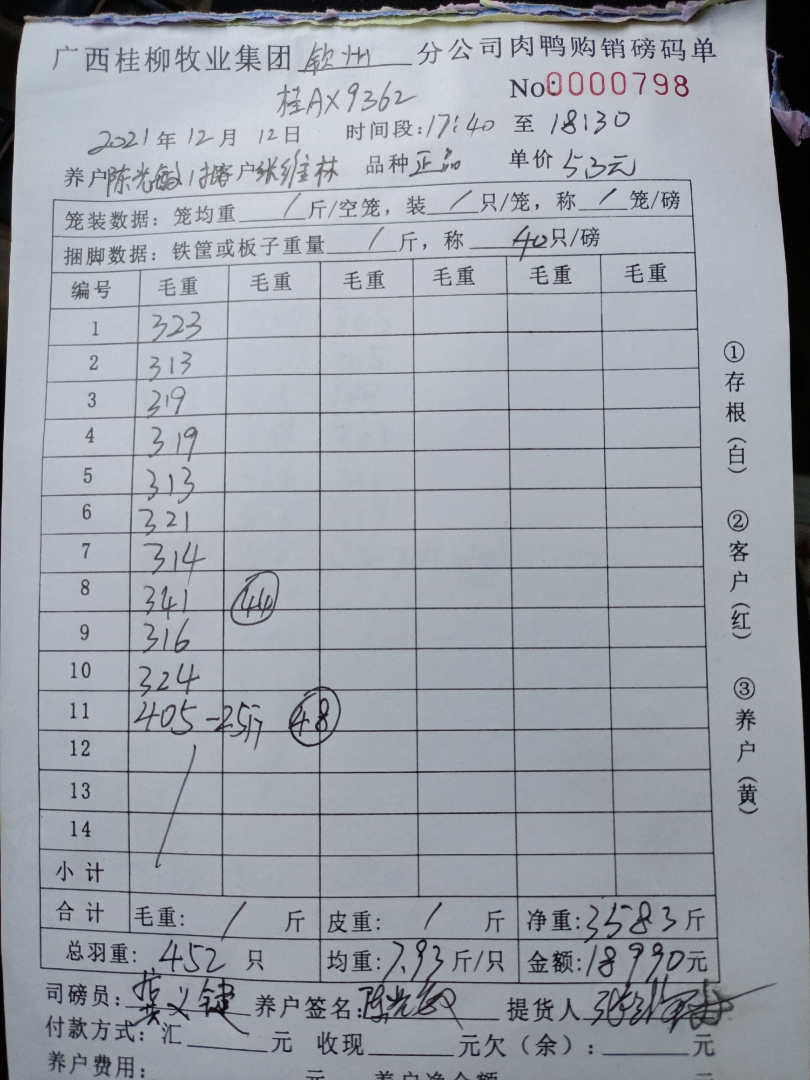 广西桂柳牧业集团 钦州 分公司肉鸭购销磅码单
桂AX9362 No:0000798
2021年12月12日 时间段:17:40 至 18:30
养户 陈光敏 客户 张维林 品种 正品 单价 5.3元
笼装数据：笼均重 / 斤/空笼，装 / 只/笼，称 / 笼/磅
捆脚数据：铁筐或板子重量 / 斤，称 40只/磅
编号 毛重 毛重 毛重 毛重 毛重 毛重
1 323
2 313
3 319
4 319
5 313
6 321
7 314
8 341 44
9 316
10 324
11 405 -25斤 48
12
13
14
小计
合计 毛重: / 斤 皮重: / 斤 净重:3583斤
总羽重: 452 只 均重:7.93斤/只 金额:18990元
司磅员: 龚义键 养户签名:陈光敏 提货人
付款方式: 汇 元 收现 元欠（余）: 元
养户费用: 元 养户净金额 元
①存根（白） ②客户（红） ③养户（黄）